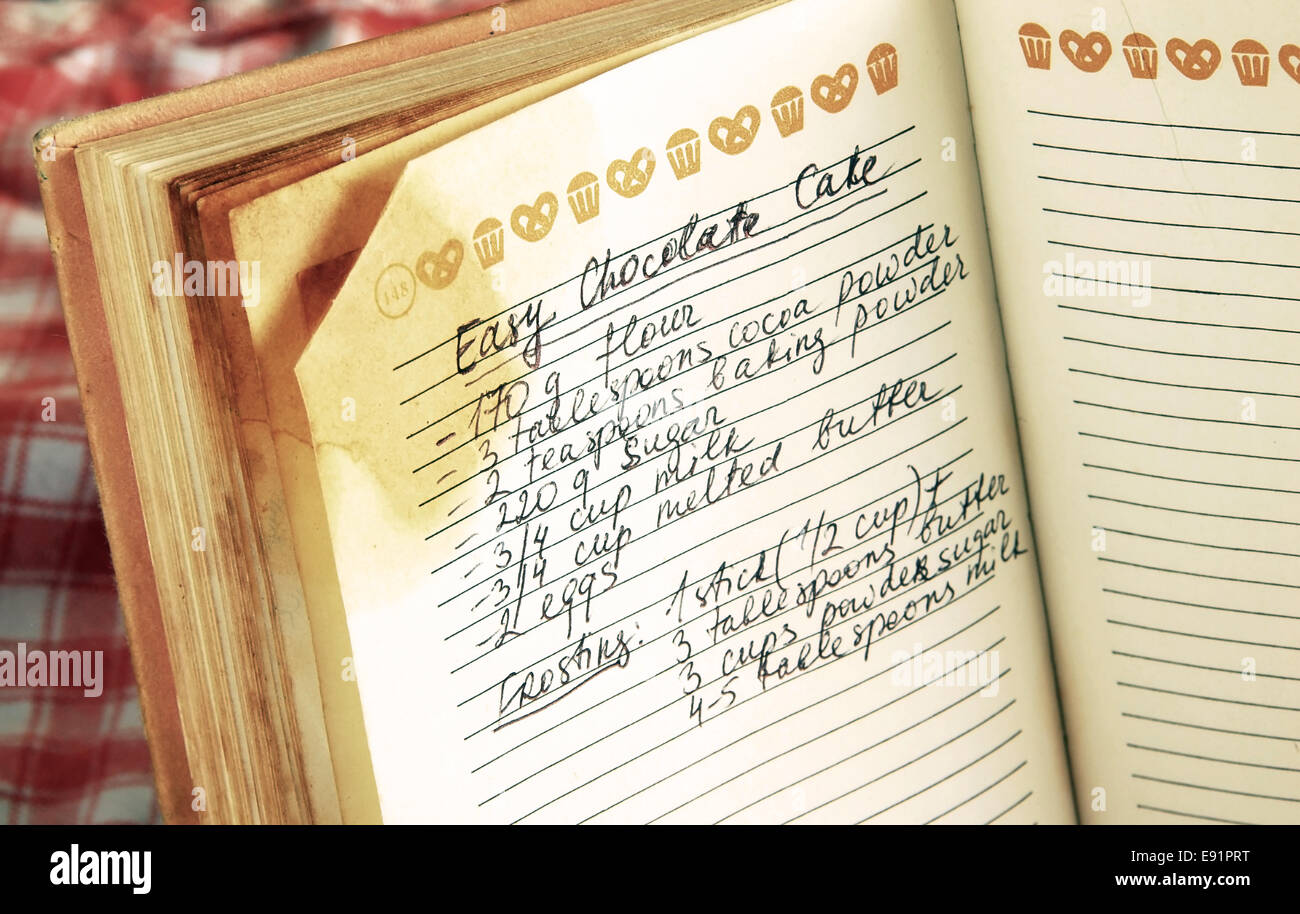 148
Easy Chocolate Cake
- 170 g flour
- 3 tablespoons cocoa powder
- 2 teaspoons baking powder
- 220 g sugar
- 3/4 cup milk
- 3/4 cup melted butter
- 2 eggs
Frosting: 1 stick (1/2 cup) +
3 tablespoons butter
3 cups powder sugar
4-5 tablespoons milk
alamy
E91PRT
www.alamy.com